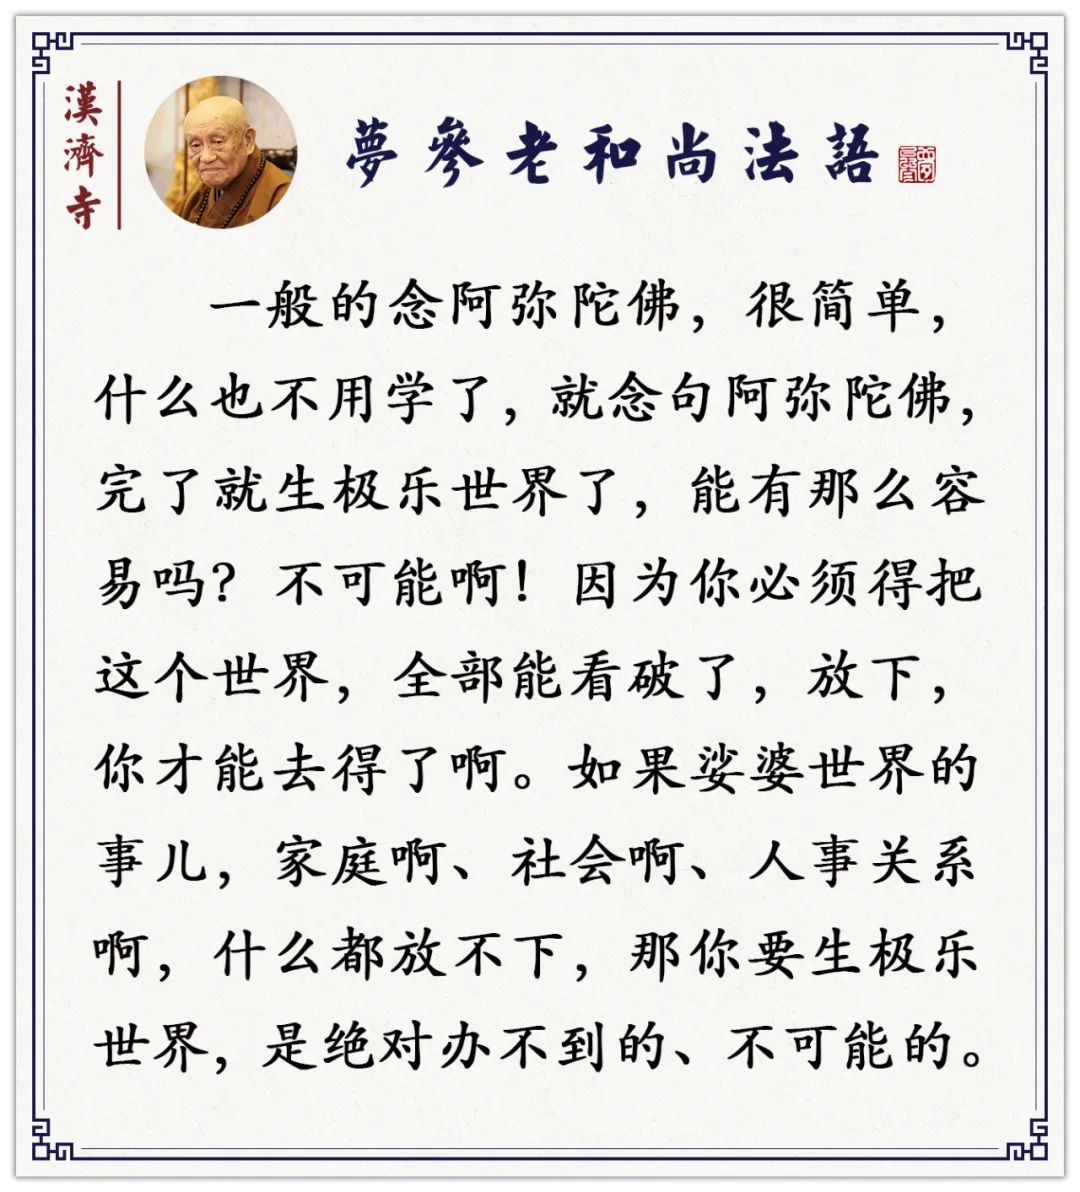 漢濟寺
夢參老和尚法語
一般的念阿弥陀佛，很简单，
什么也不用学了，就念句阿弥陀佛，
完了就生极乐世界了，能有那么容
易吗？不可能啊！因为你必须得把
这个世界，全部能看破了，放下，
你才能去得了啊。如果娑婆世界的
事儿，家庭啊、社会啊、人事关系
啊，什么都放不下，那你要生极乐
世界，是绝对办不到的、不可能的。